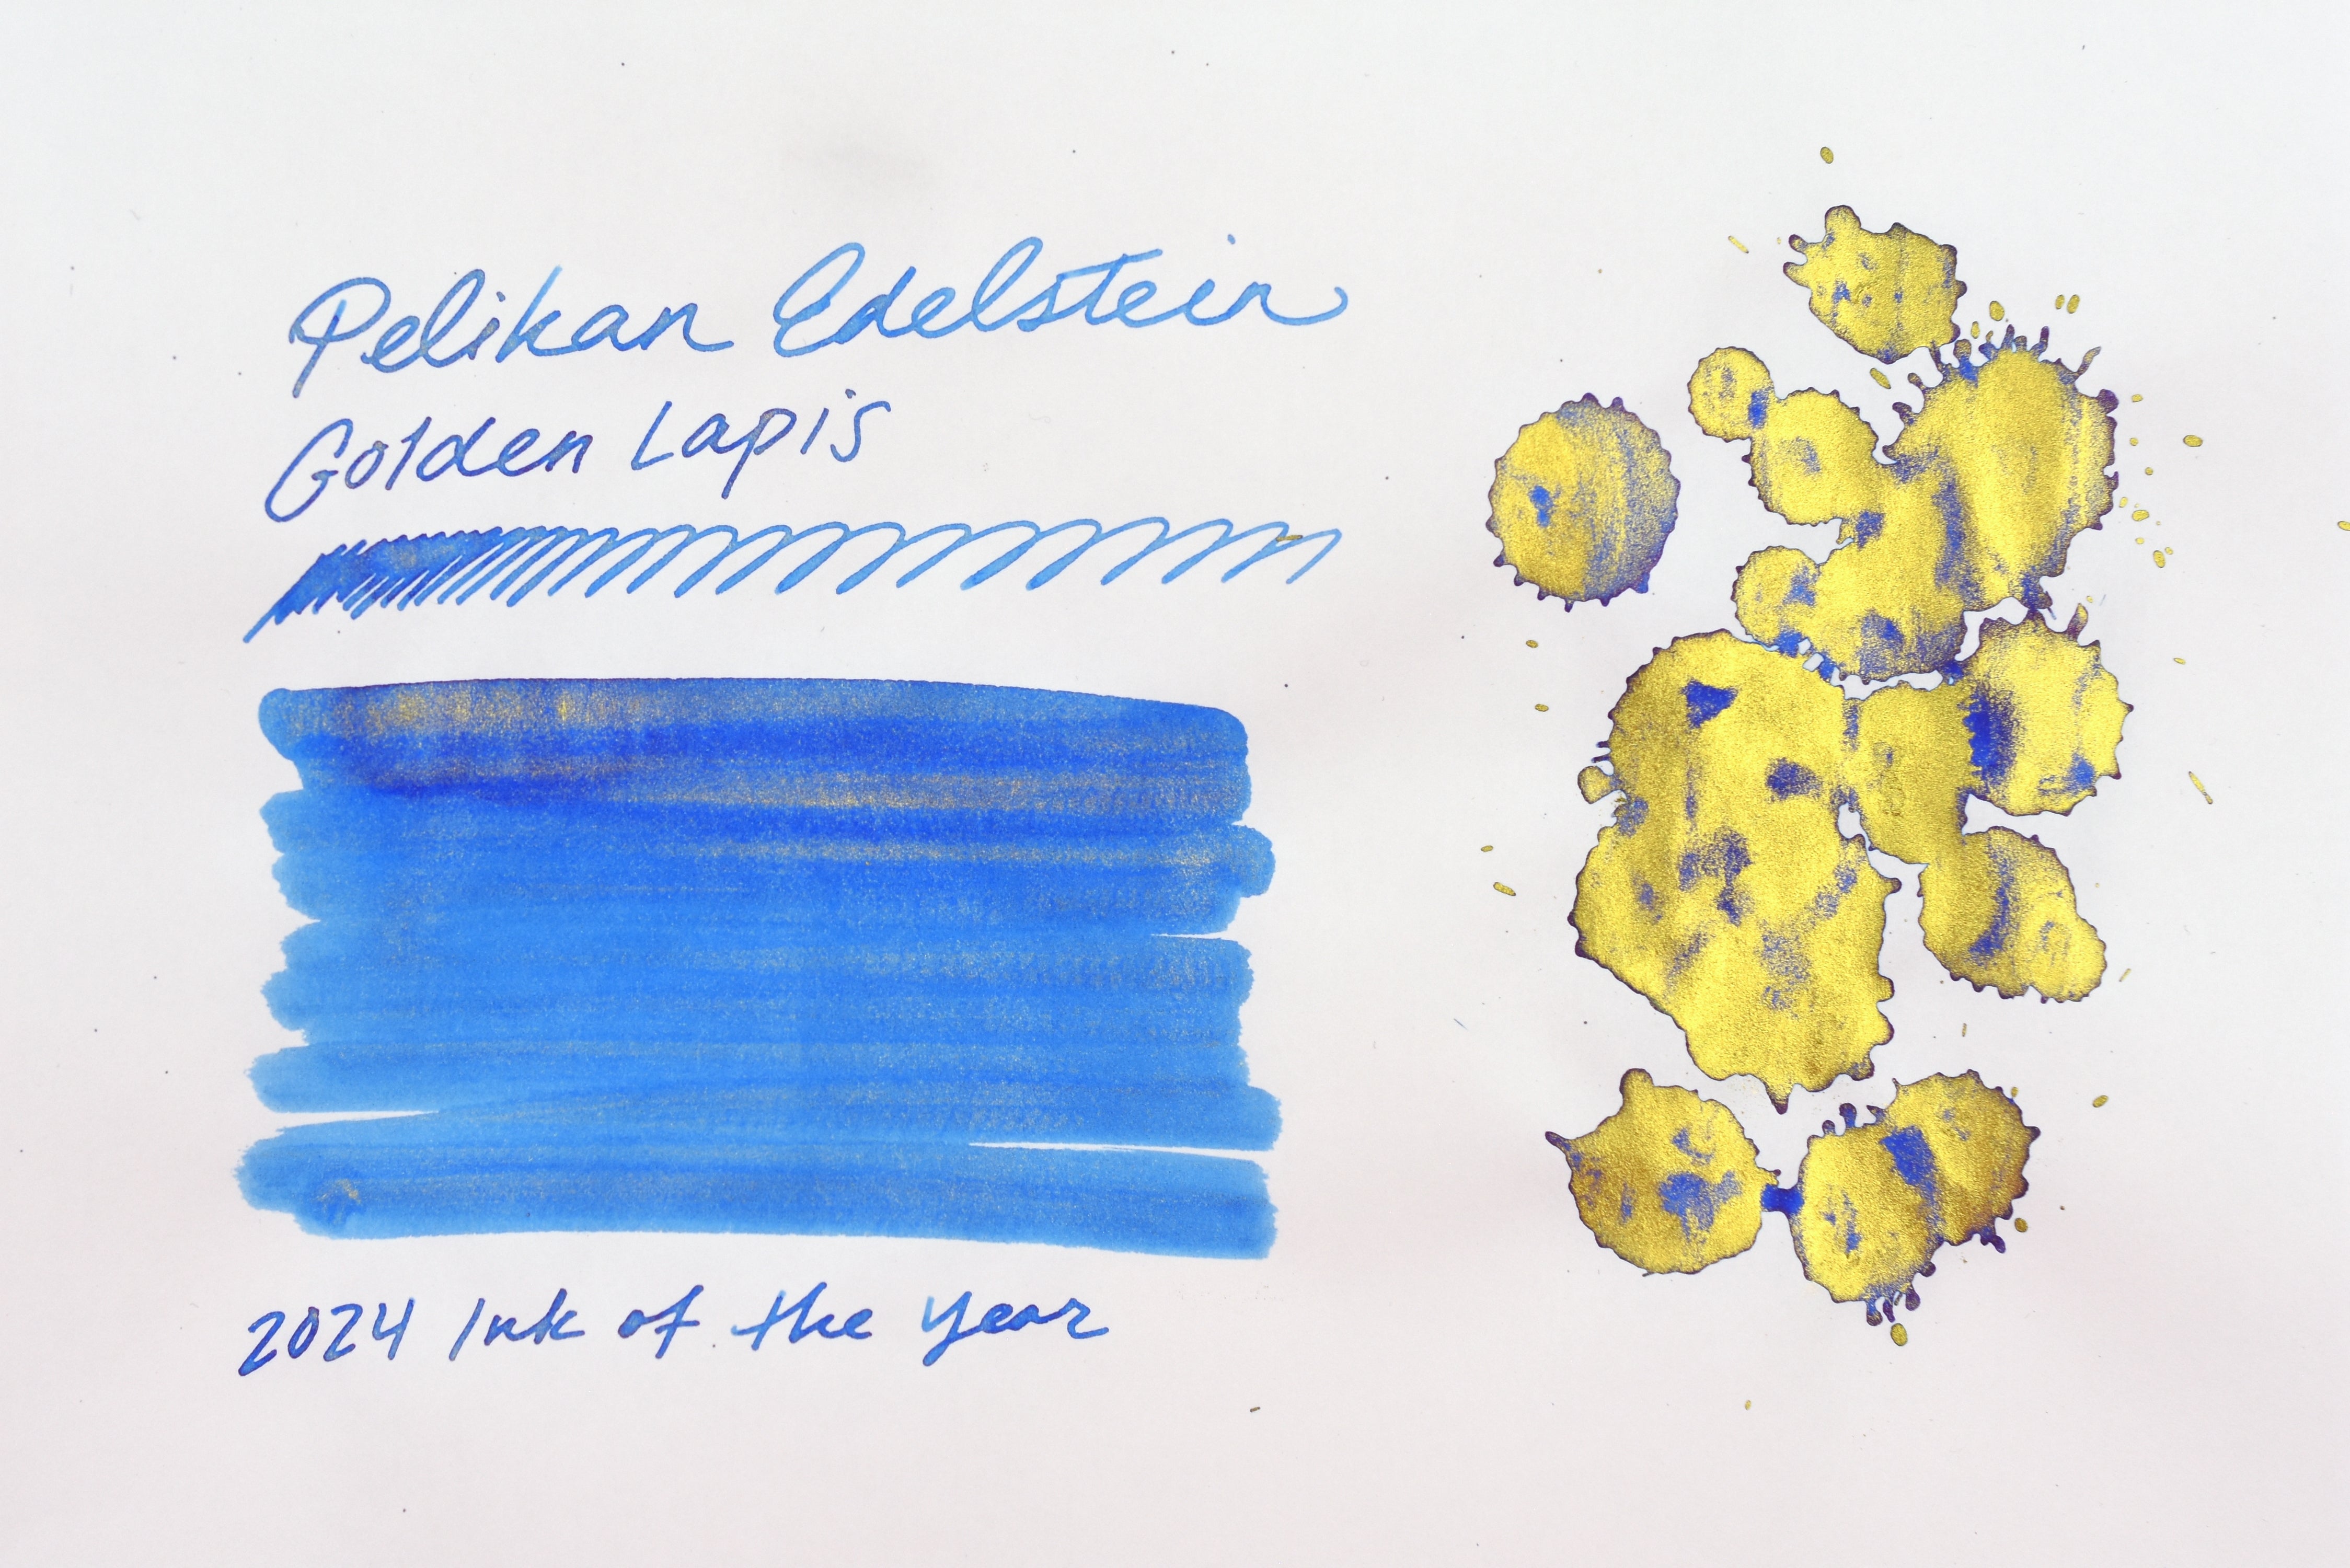 Pelikan Edelstein
Golden Lapis
2024 Ink of the Year